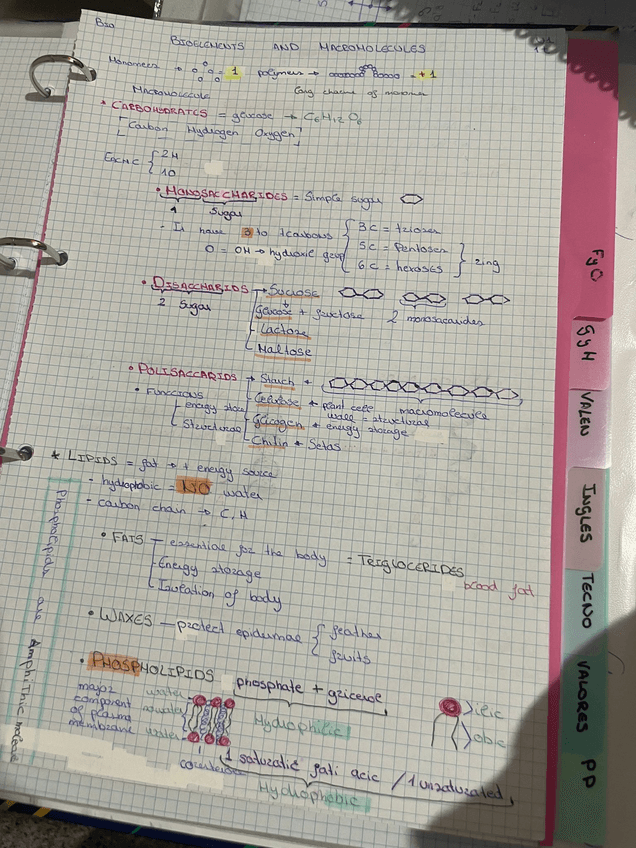 BIO
BIOELEMENTS AND MACROMOLECULES
Monomers → = 1 polymers → → +1
MACROMOLECULE long chains of monomer
* CARBOHYDRATES = glucose → C6H12O6
[Carbon Hydrogen Oxygen]
EACH C { 2H
1O
• MONOSACCHARIDES = Simple sugar
1 Sugar
- It have 3 to 7 carbons { 3C = trioses
O = OH → hydroxil group 5C = Pentoses } ring
6C = hexoses
• DISACCHARIDS → Suclose
2 sugar glucose + fructose 2 monosacarides
Lactose
Maltose
• POLISACCARIDS → Starch +
• FUNCIONS
energy store
Structural
Celulose * plant cells wall = structural
macromolecule
Glicogen * energy storage
Chitin * Setas
* LIPIDS = fat → + energy source
- hydrophobic = NO water
- carbon chain → C, H
• FATS — essential for the body = TRIGLOCERIDES
Energy storage blood fat
Isolation of body
• WAXES — protect epidermae { feather
fruits
• PHOSPHOLIPIDS phosphate + glicerol
major component of plasma membrane
water
no water
water
Hydrophilic
ilic
obic
1 saturatic fati acic / 1 unsaturated
Hydrophobic
Phospholipids are Amphithic
FyQ
GyH
VALEN
INGLES
TECNO
VALORES
PP